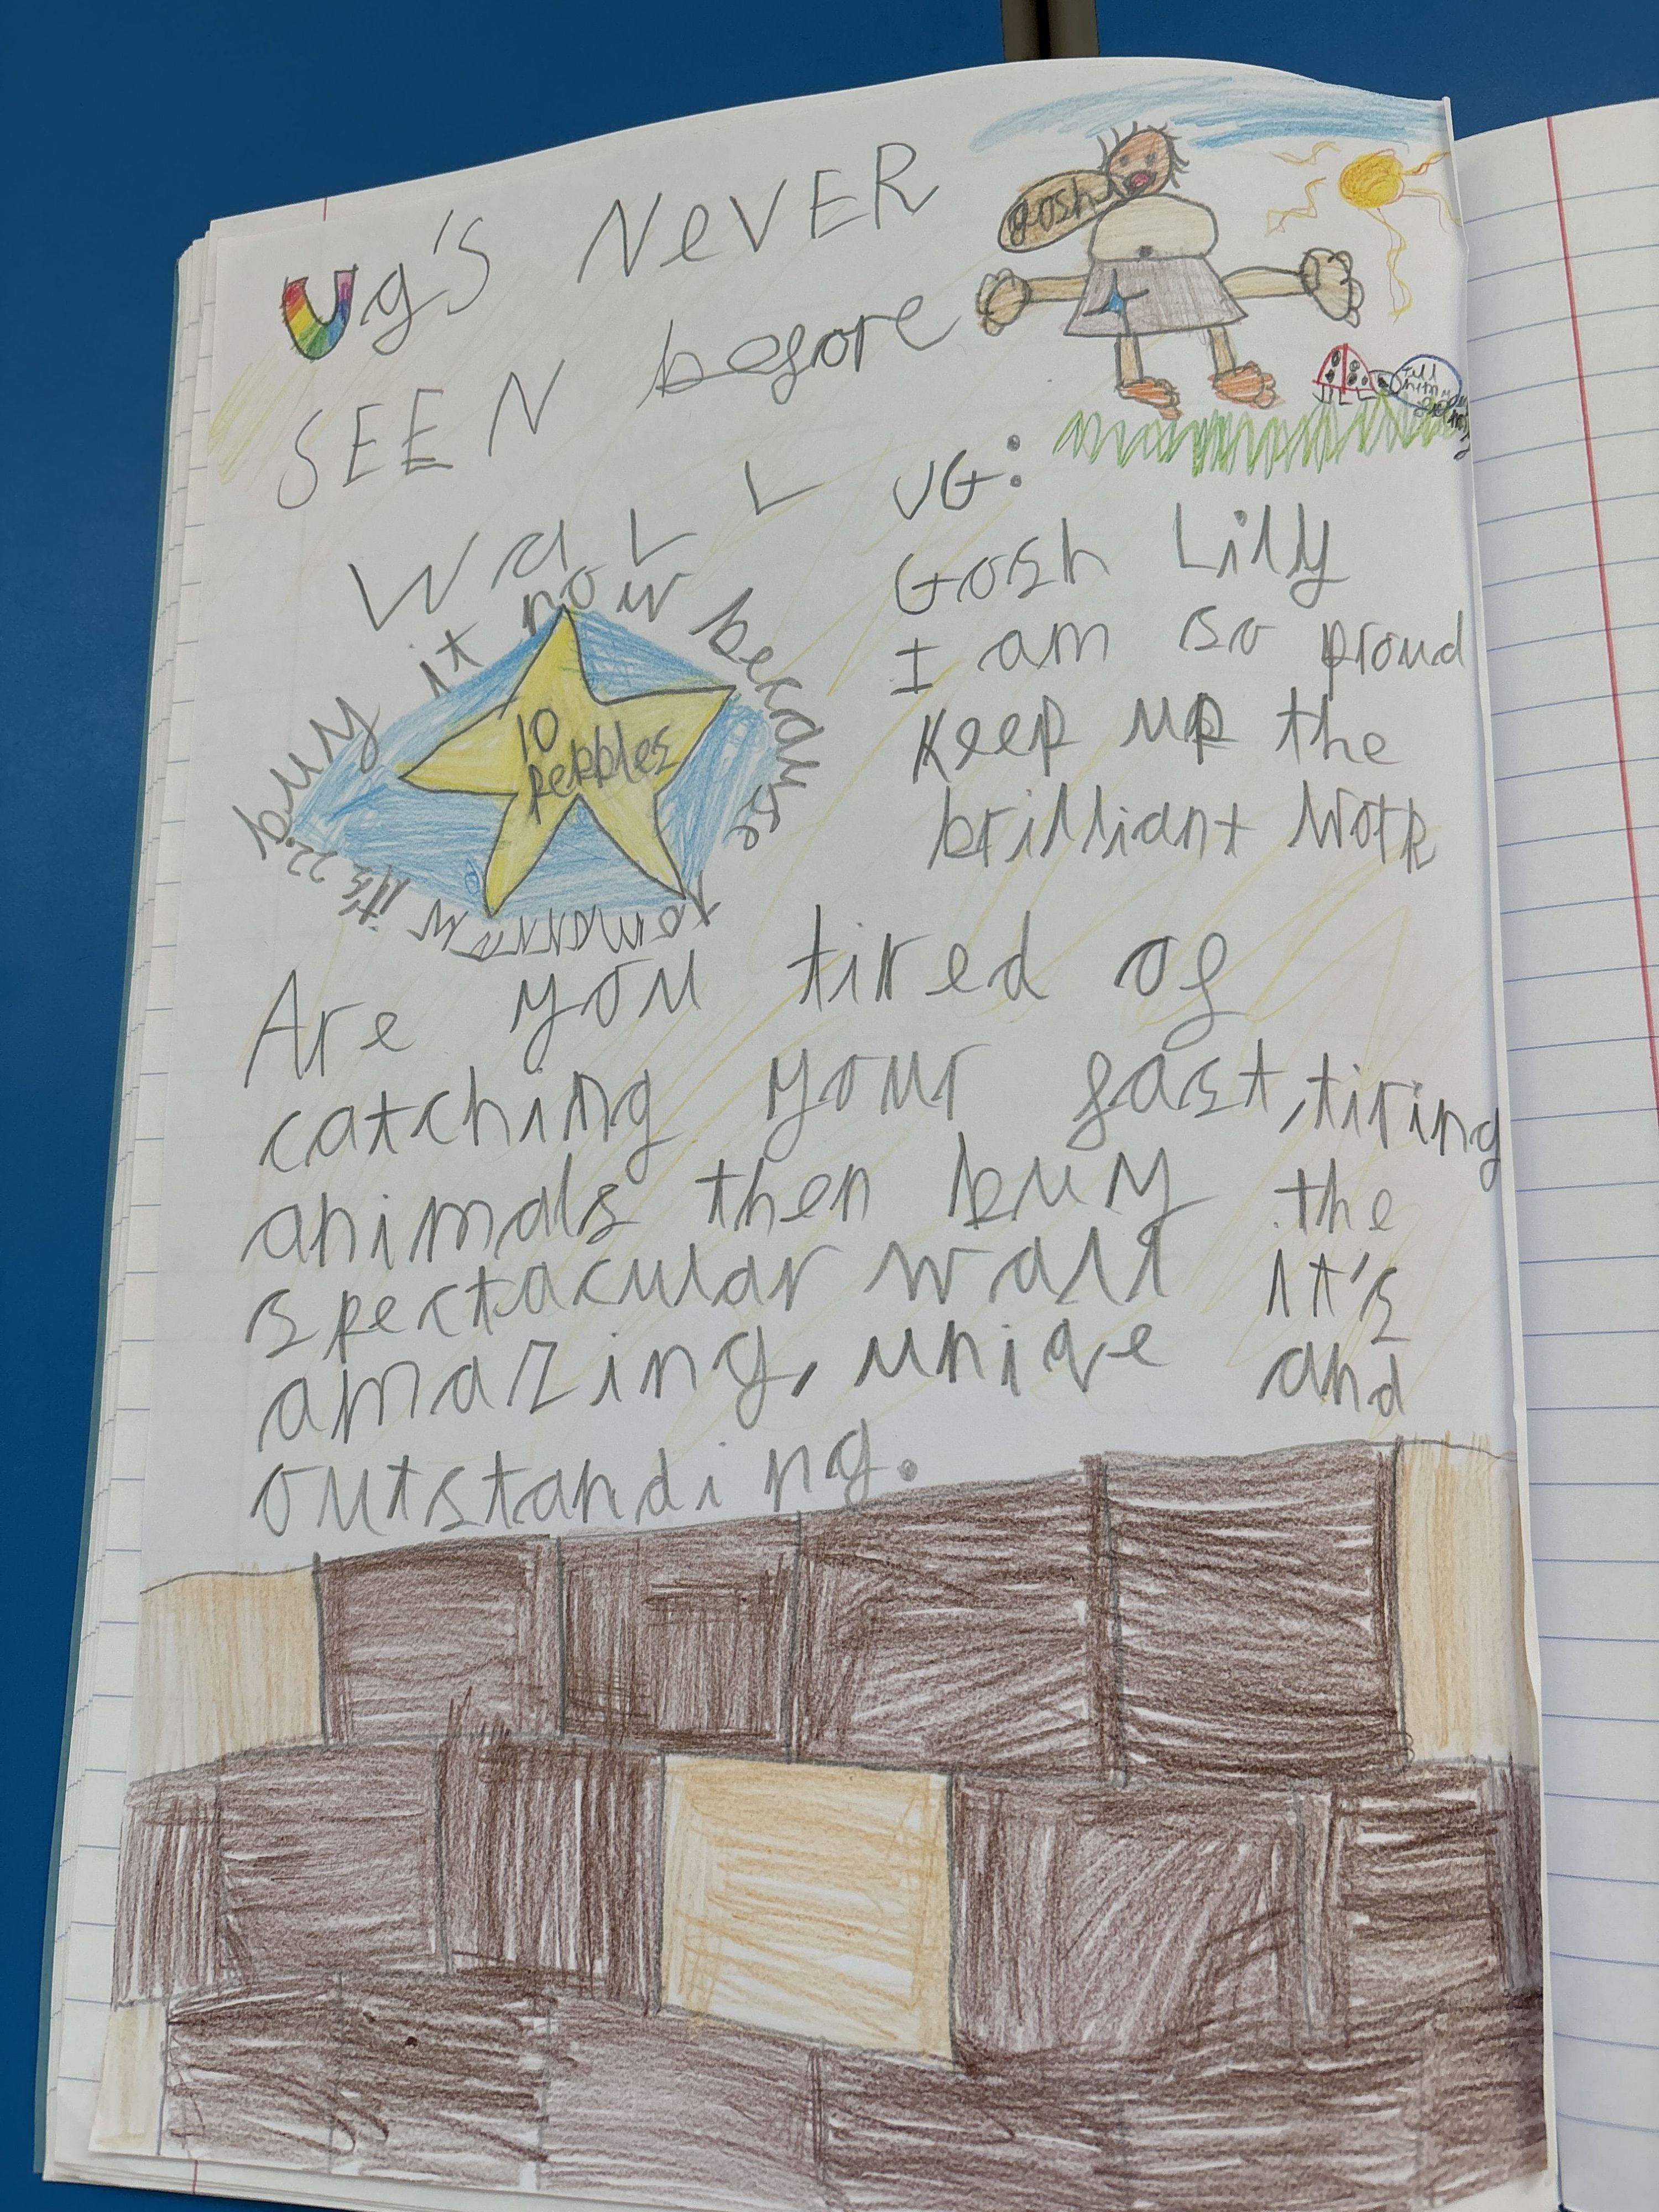 Ug's NeVER
SEEN before
WaLL
gosh
buy it now because
tomorrow it's 22.
10
Pebbles
UG:
Gosh Lilly
I am so proud
Keep up the
brilliant work
Are you tired of
catching your fast, tiring
animals then buy the
spectacular wall it's
amazing, uniqe and
outstanding.